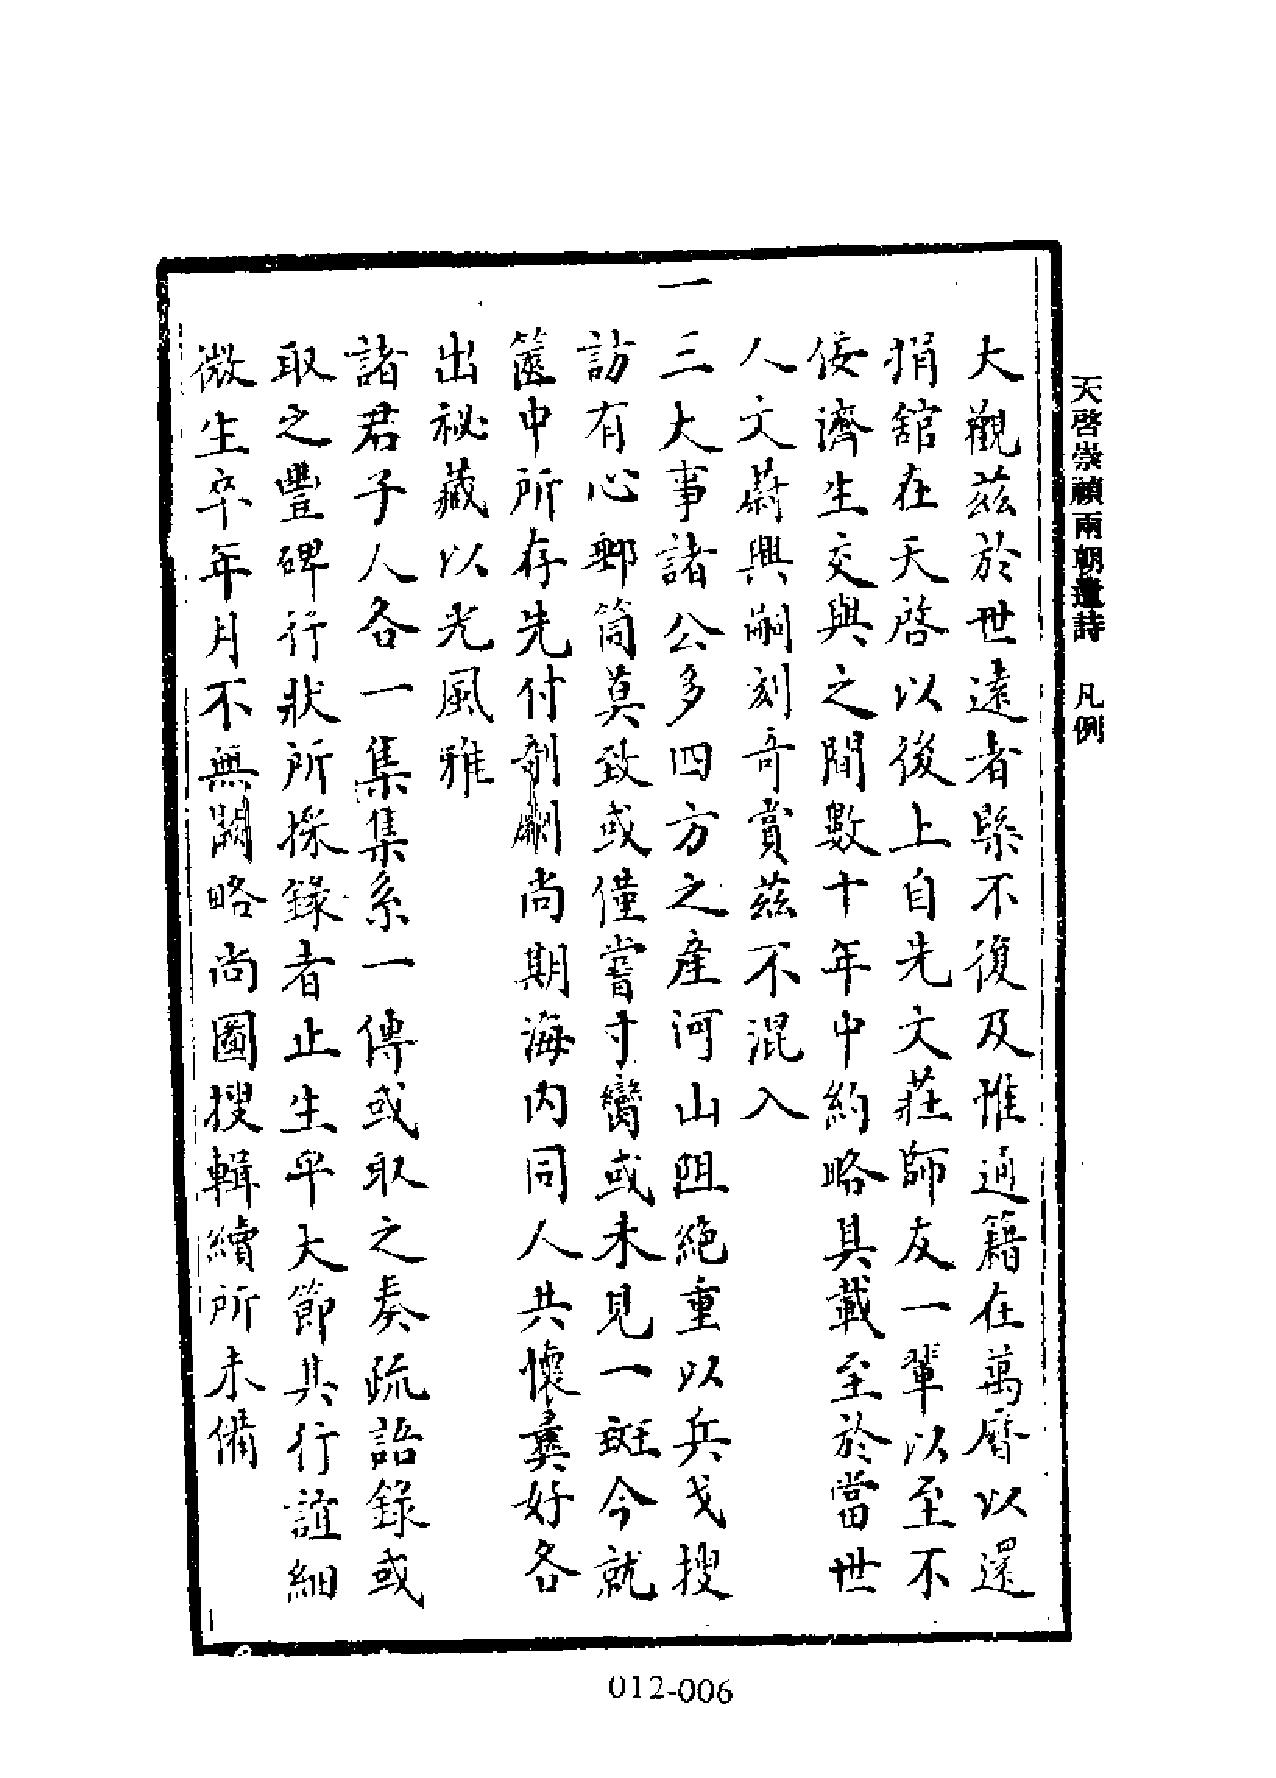 天啓崇禎兩朝遺詩 凡例
大觀茲於世遠者緜不復及惟通籍在萬曆以還
捐舘在天啓以後上自先文莊師友一輩以至不
佞濟生交與之間數十年中約略具載至於當世
人文蔚興嗣刻奇賞茲不混入
一三大事諸公多四方之產河山阻絕重以兵戈搜
訪有心郵筒莫致或僅嘗寸臠或未見一斑今就
篋中所存先付剞劂尚期海内同人共懷彝好各
出祕藏以光風雅
諸君子人各一集集系一傳或取之奏疏語錄或
取之豐碑行狀所採錄者止生平大節其行誼細
微生卒年月不無闕略尚圖搜輯續所未備
012-006